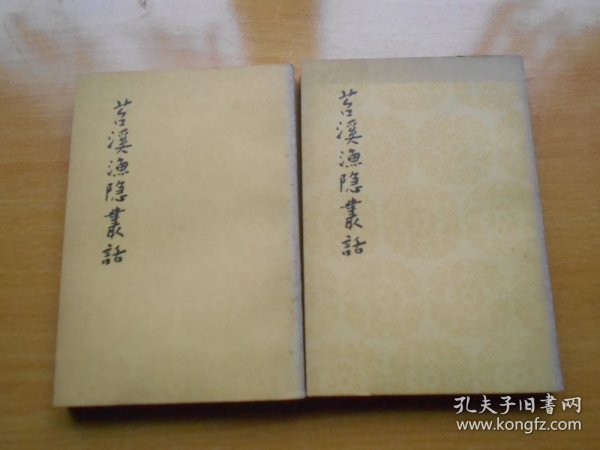 苕溪漁隱叢話
苕溪漁隱叢話
孔夫子旧书网
www.kongfz.com